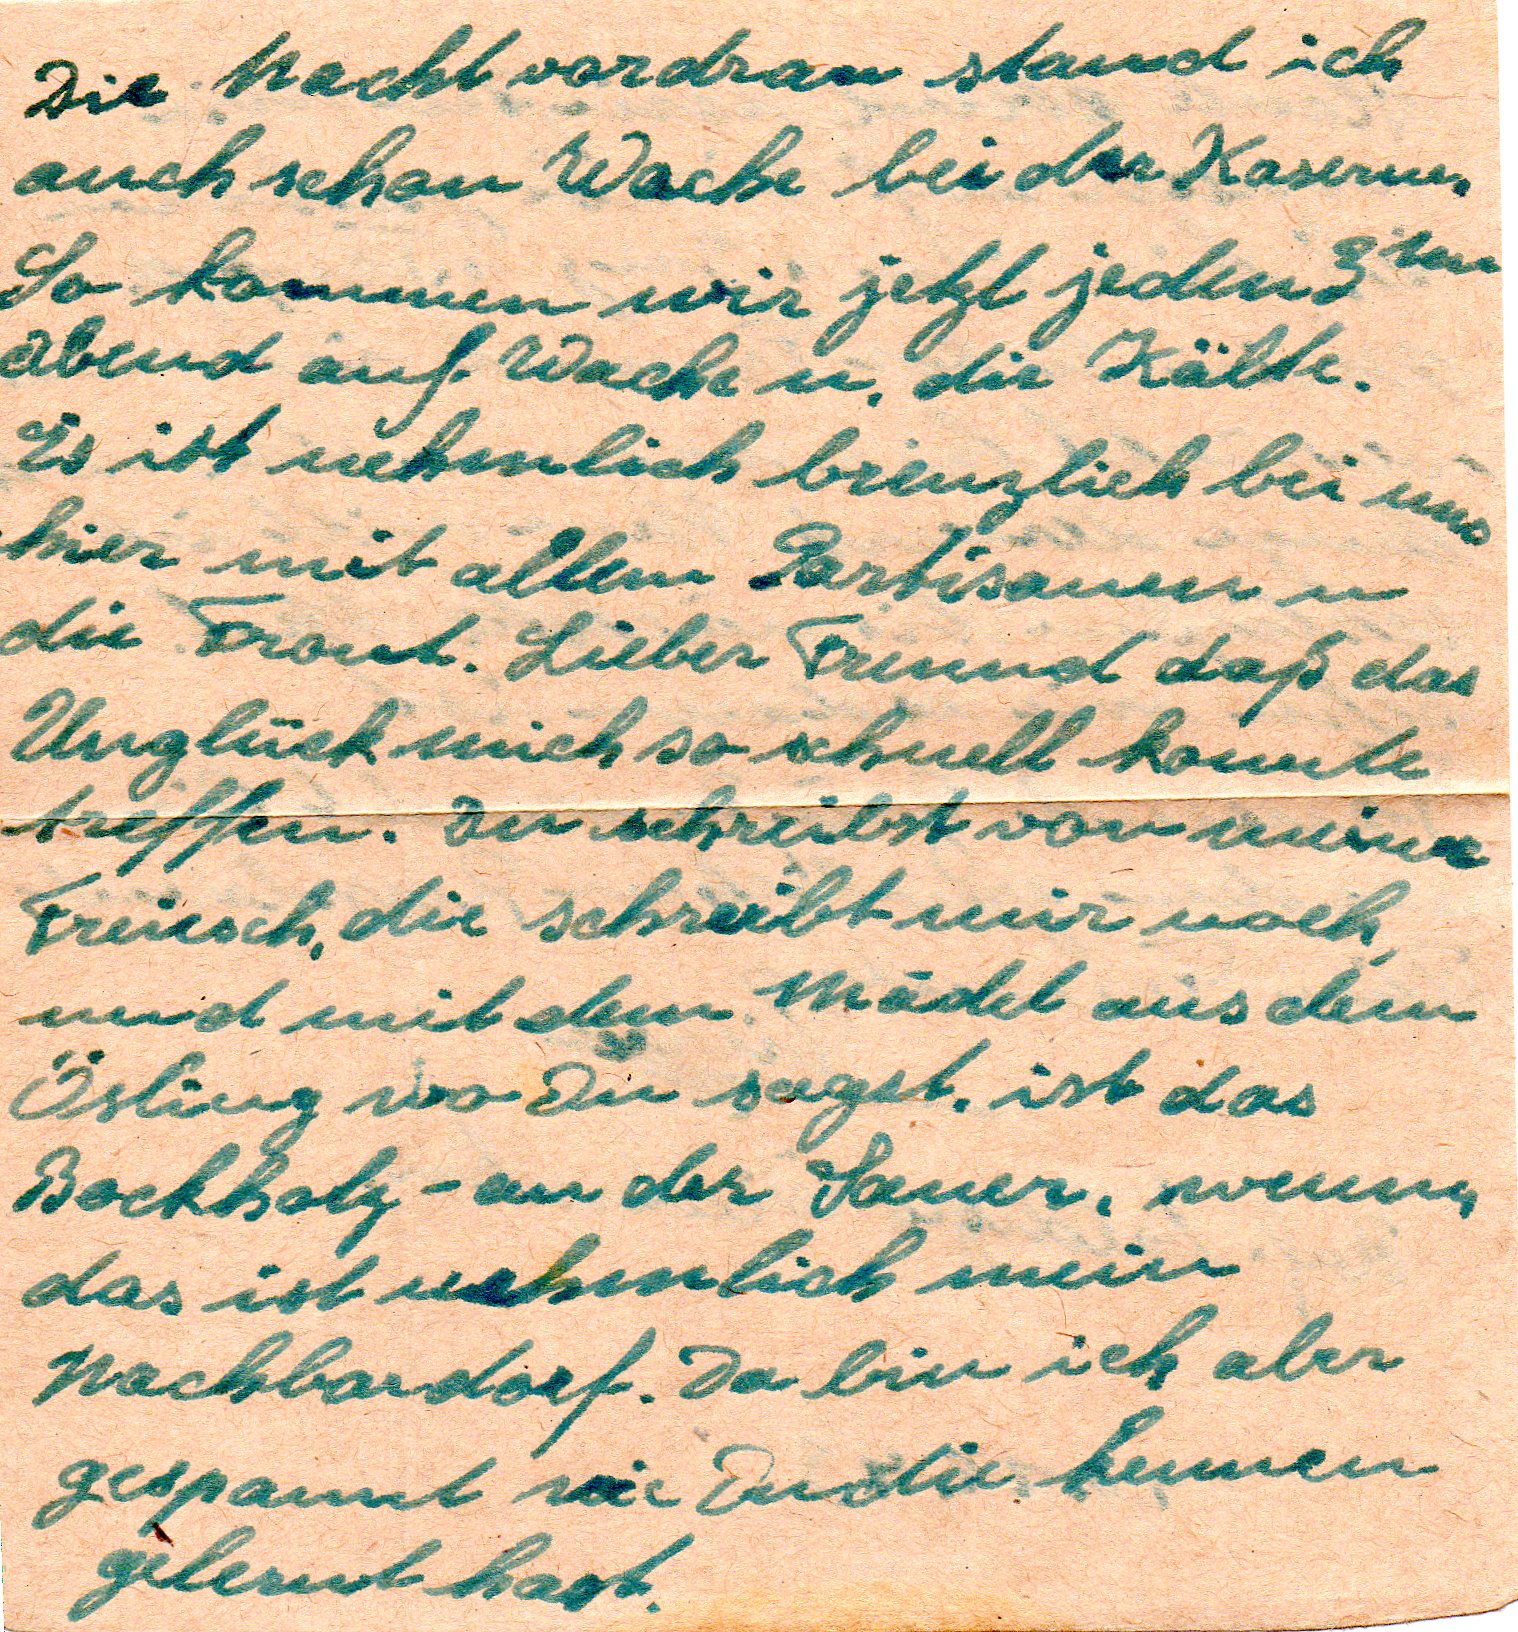 Die Nacht vordran stand ich
auch schon Wache bei der Kaserne,
So kommen wir jetzt jeden 3ten
Abend auf Wache u. die Kälte.
Es ist nehmlich brenzlich bei uns
hier mit allem Partisanen u
die Front. Lieber Freund daß das
Unglück mich so schnell konnte
treffen. Du schreibst von meiner
Freiesch, die schreibt mir noch,
und mit dem Mädel aus dem
Ösling wo Du sagst, ist das
Bockholz - an der Sauer, wenn,
das ist nehmlich mein
Nachbardorf. Da bin ich aber
gespannt wie Du die kennen
gelernt hast.